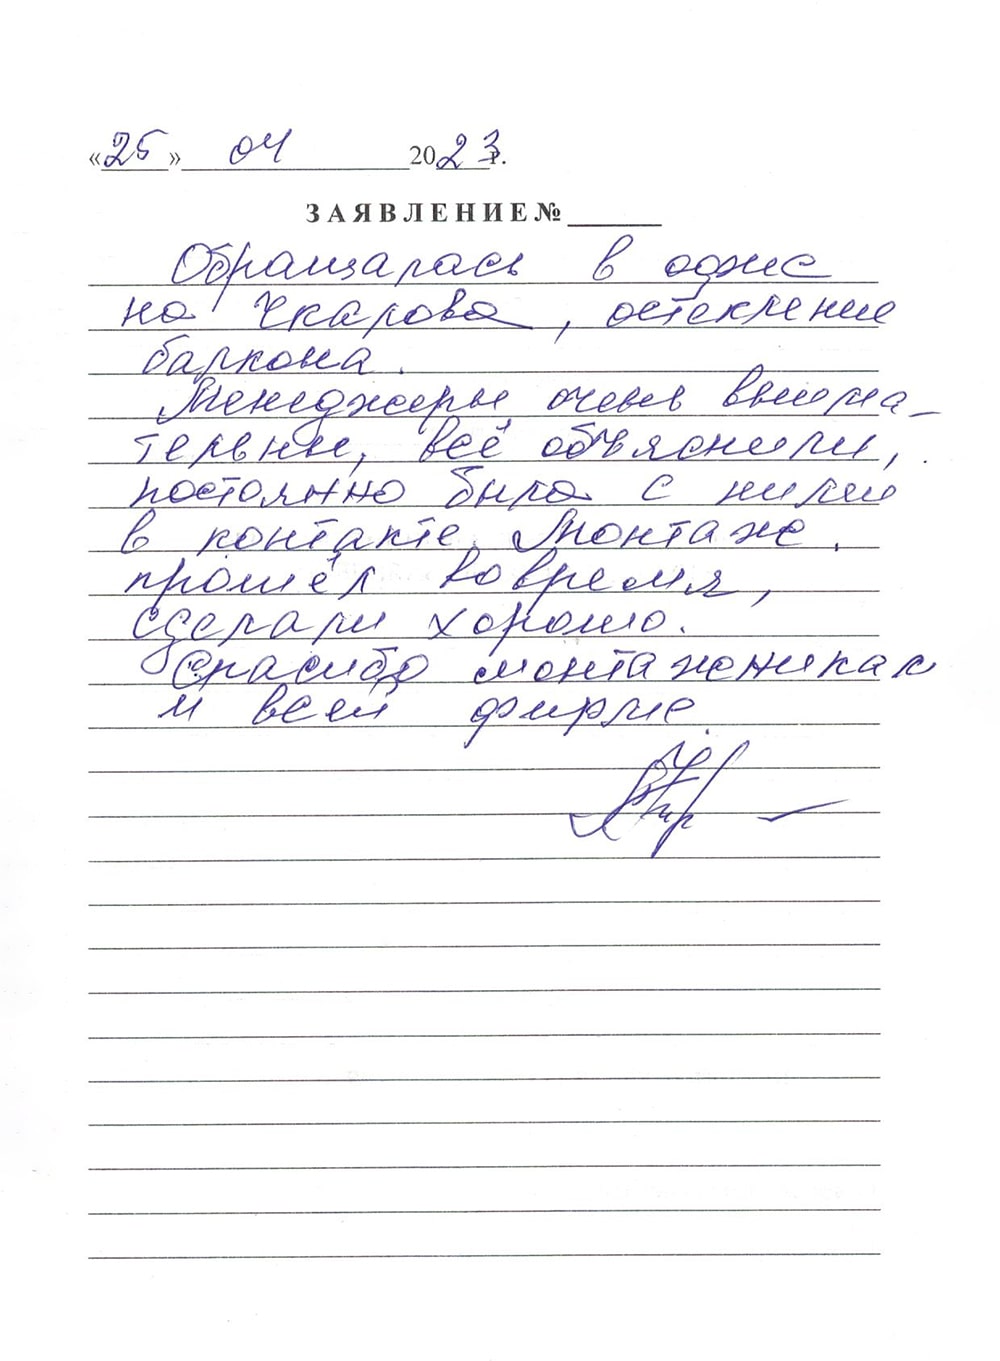 «25» 04 2023 г.
ЗАЯВЛЕНИЕ №
Обращалась в офис
на Чкалова, остекление
балкона.
Менеджеры очень внима-
тельны, всё объяснили,
постоянно была с ними
в контакте. Монтаж
прошёл вовремя,
сделали хорошо.
Спасибо монтажникам
и всей фирме.